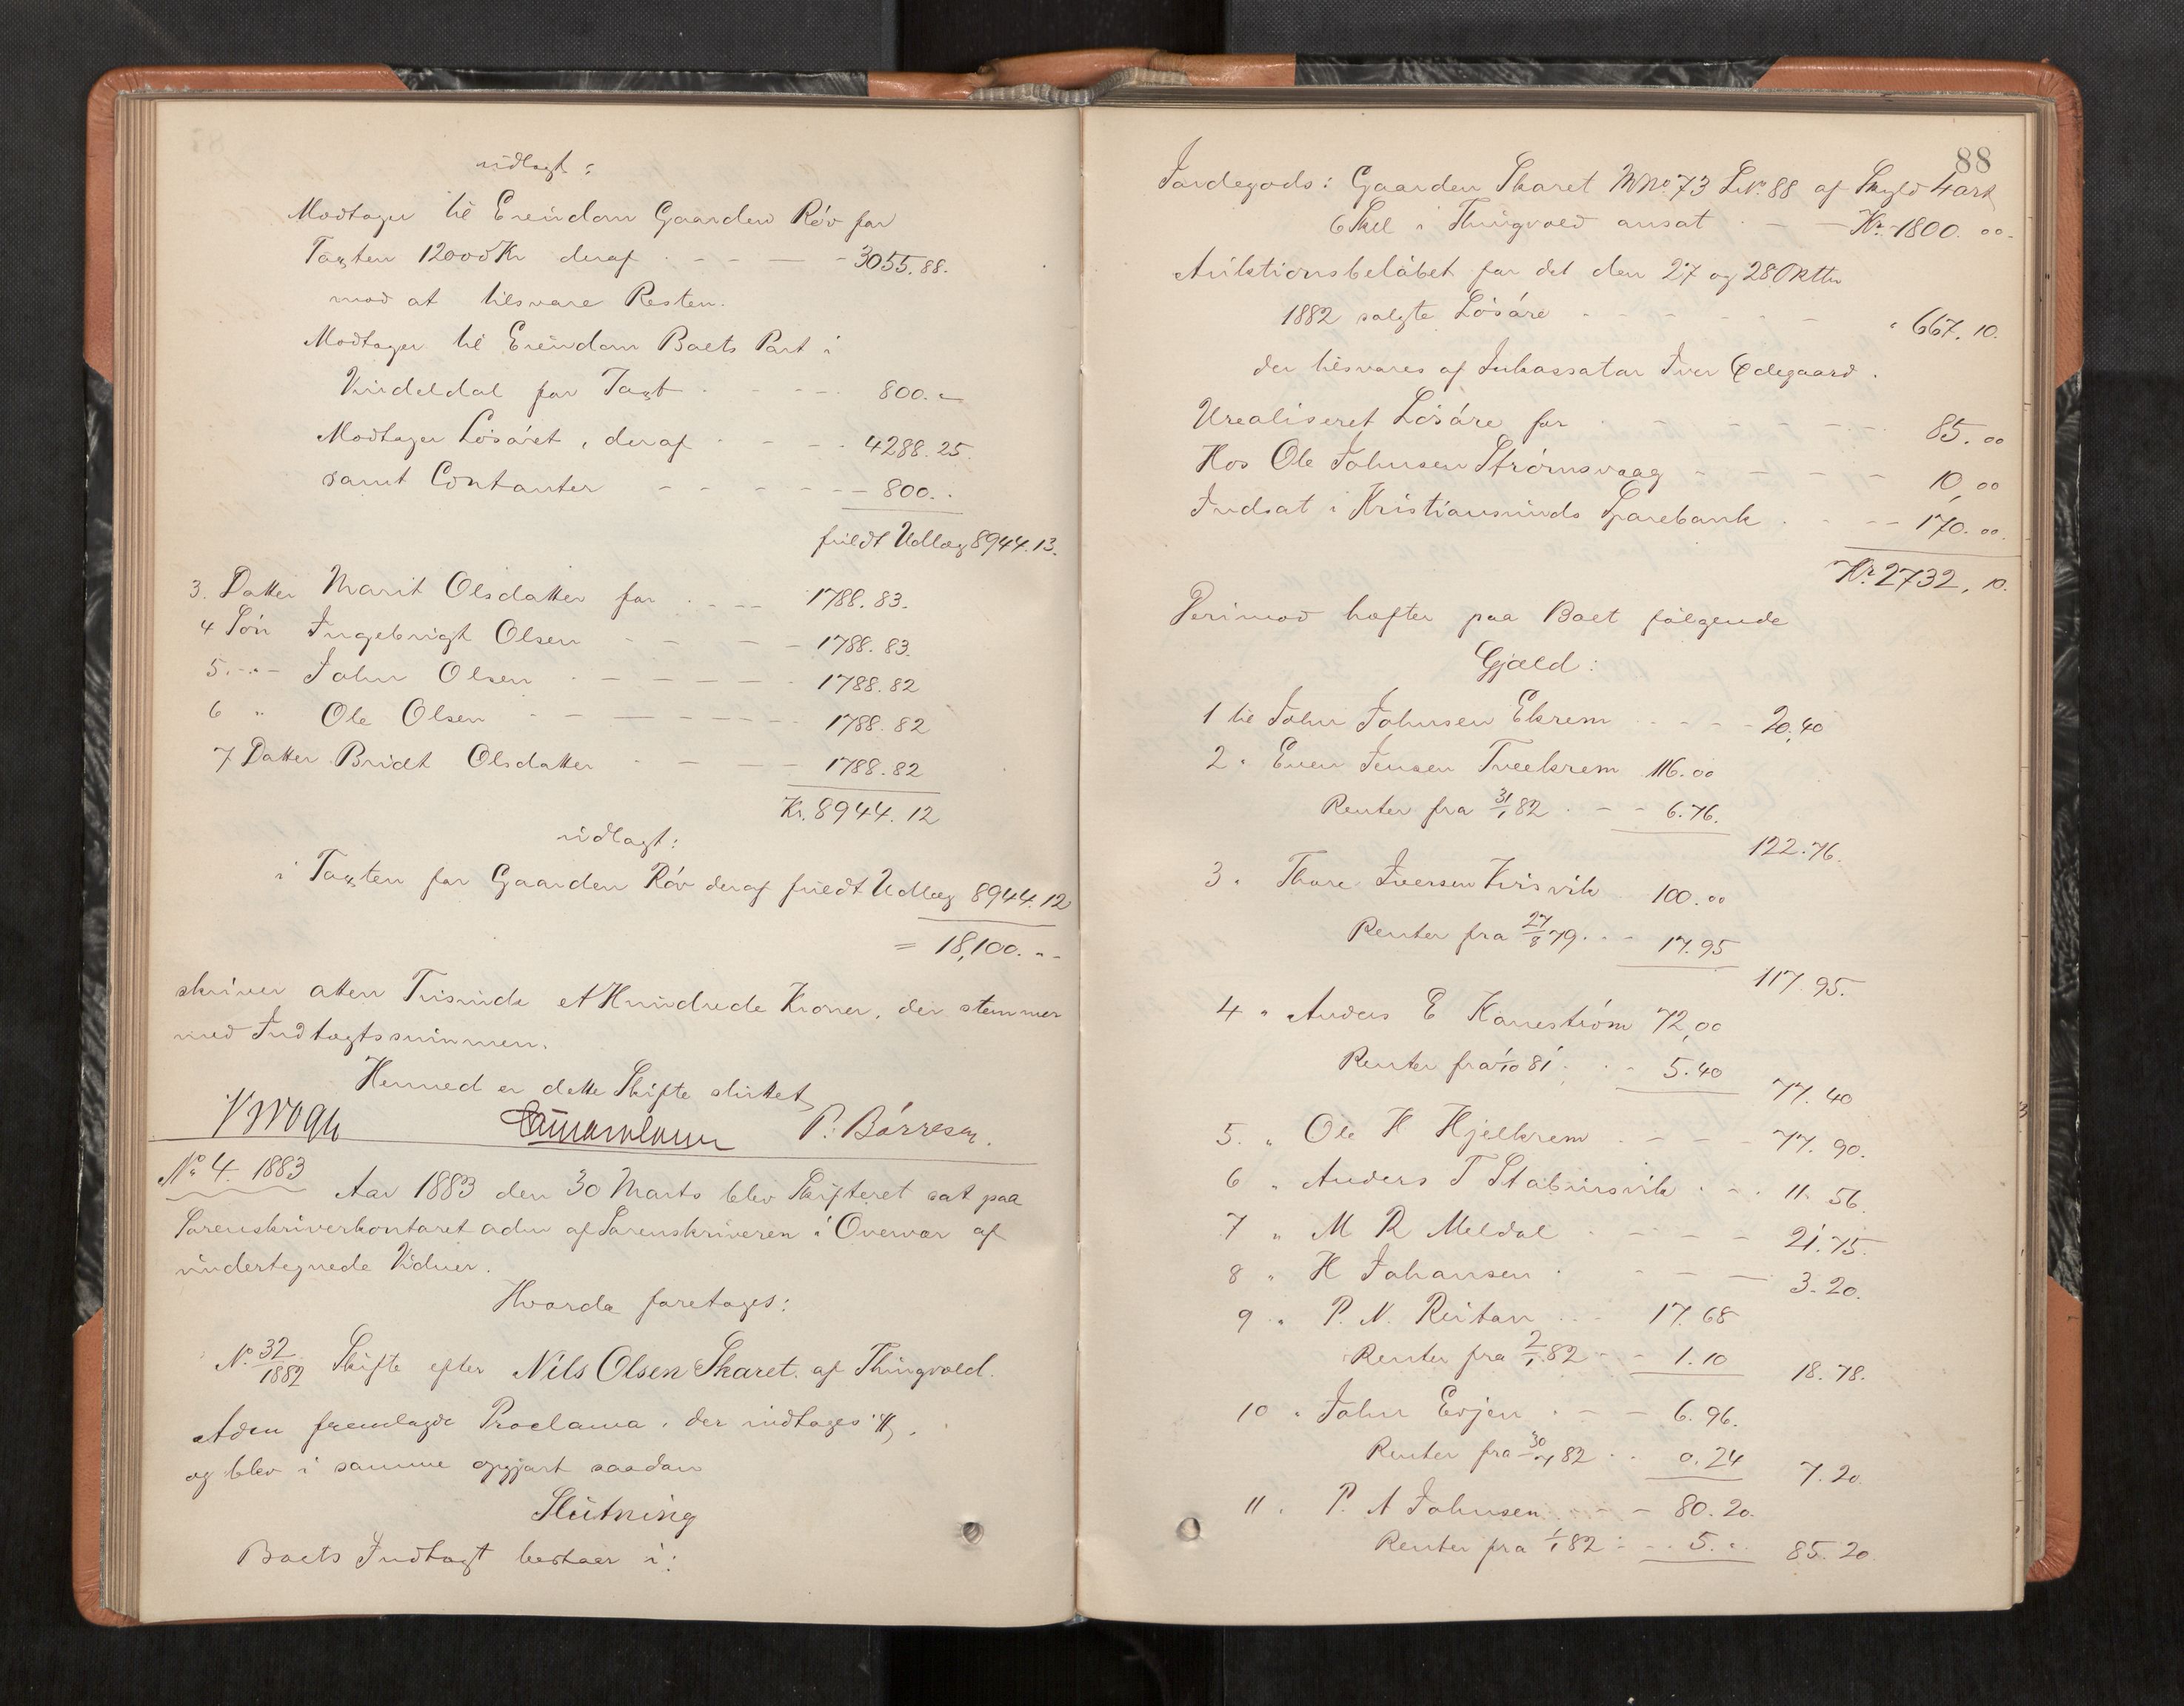 udlagt:
Modtager til Eiendom Gaarden Röv for
Taxten 12000 Kr deraf - - - - 3055.88.
mod at tilsvare Resten.
Modtager til Eiendom Boets Part i
Vindeldal for Taxt - - - 800.-
Modtager Lösöret, deraf - - - 4288.25.
samt Contanter - - - - - 800. -
fuldt Udlæg 8944.13.
3. Datter Marit Olsdatter for - - - 1788.83.
4 Sön Ingebrigt Olsen - - - 1788.83.
5. -"- John Olsen - - - - - - 1788.82
6 " Ole Olsen - - - - - - - 1788.82
7 Datter Bridt Olsdatter - - - - 1788.82
Kr. 8944.12
udlagt:
i Taxten for Gaarden Röv deraf fuldt Udlæg 8944.12
= 18,100. - -
skriver atten Tusinde et Hundrede Kroner, der stemmer
med Indtægtssummen.
Hermed er dette Skifte sluttet
P. Börresen.
No. 4. 1883
Aar 1883 den 30 Marts blev Skifteret sat paa
Sorenskriverkontoret adm af Sorenskriveren i Overvær af
undertegnede Vidner.
Hvorda foretages:
No. 32/1882 Skifte efter Nils Olsen Skaret. af Thingvold.
Adm fremlagde Proclama, der indtages
og blev i samme opgjort saadan
Slutning
Boets Indtægt bestaar i:
88
Jordegods: Gaarden Skaret MNo. 73 LNo. 88 af Skyld 4 ort
6 Skil i Thingvold ansat - - - Kr. 1800.00.
Auktionsbelöbet for det den 27 og 28 Oktbr
1882 solgte Lösöre - - - - - " 667.10.
der tilsvares af Inkassator Iver Ødegaard.
Urealiseret Lösöre for - - - - - 85.00
Hos Ole Johnsen Strömsvaag - - - - - 10,00
Indsat i Kristiansunds Sparebank - - - - 170.00.
Kr. 2732,10.
Derimod hæfter paa Boet fölgende
Gjæld:
1 til John Johnsen Ekrem - - - - 20,40
2 " Even Jensen Tveekrem 116.00
Renter fra 31/1 82 - - - 6.76.
122.76.
3 " Thore Iversen Kvisvik 100.00
Renter fra 27/8 79. - - 17.95
117.95.
4 " Anders E Kaneström 72,00
Renter fra 1/10 81 - - 5.40
77.40
5. " Ole H Hjelkrem - - - - 77.90.
6 " Anders T Stabursvik - - 11.56.
7 " M R Meldal - - - - - 21.75.
8 " H Johansen - - - - 3.20.
9 " P. N. Reitan - - - 17.68
Renter fra 2/1 82 - - 1.10
18.78.
10 " John Evjen - - - 6.96.
Renter fra 30/4 82 - - 0.24
7.20.
11 " P. A Johnsen - - - 80.20.
Renter fra 1/1 82 - - 5. "
85.20